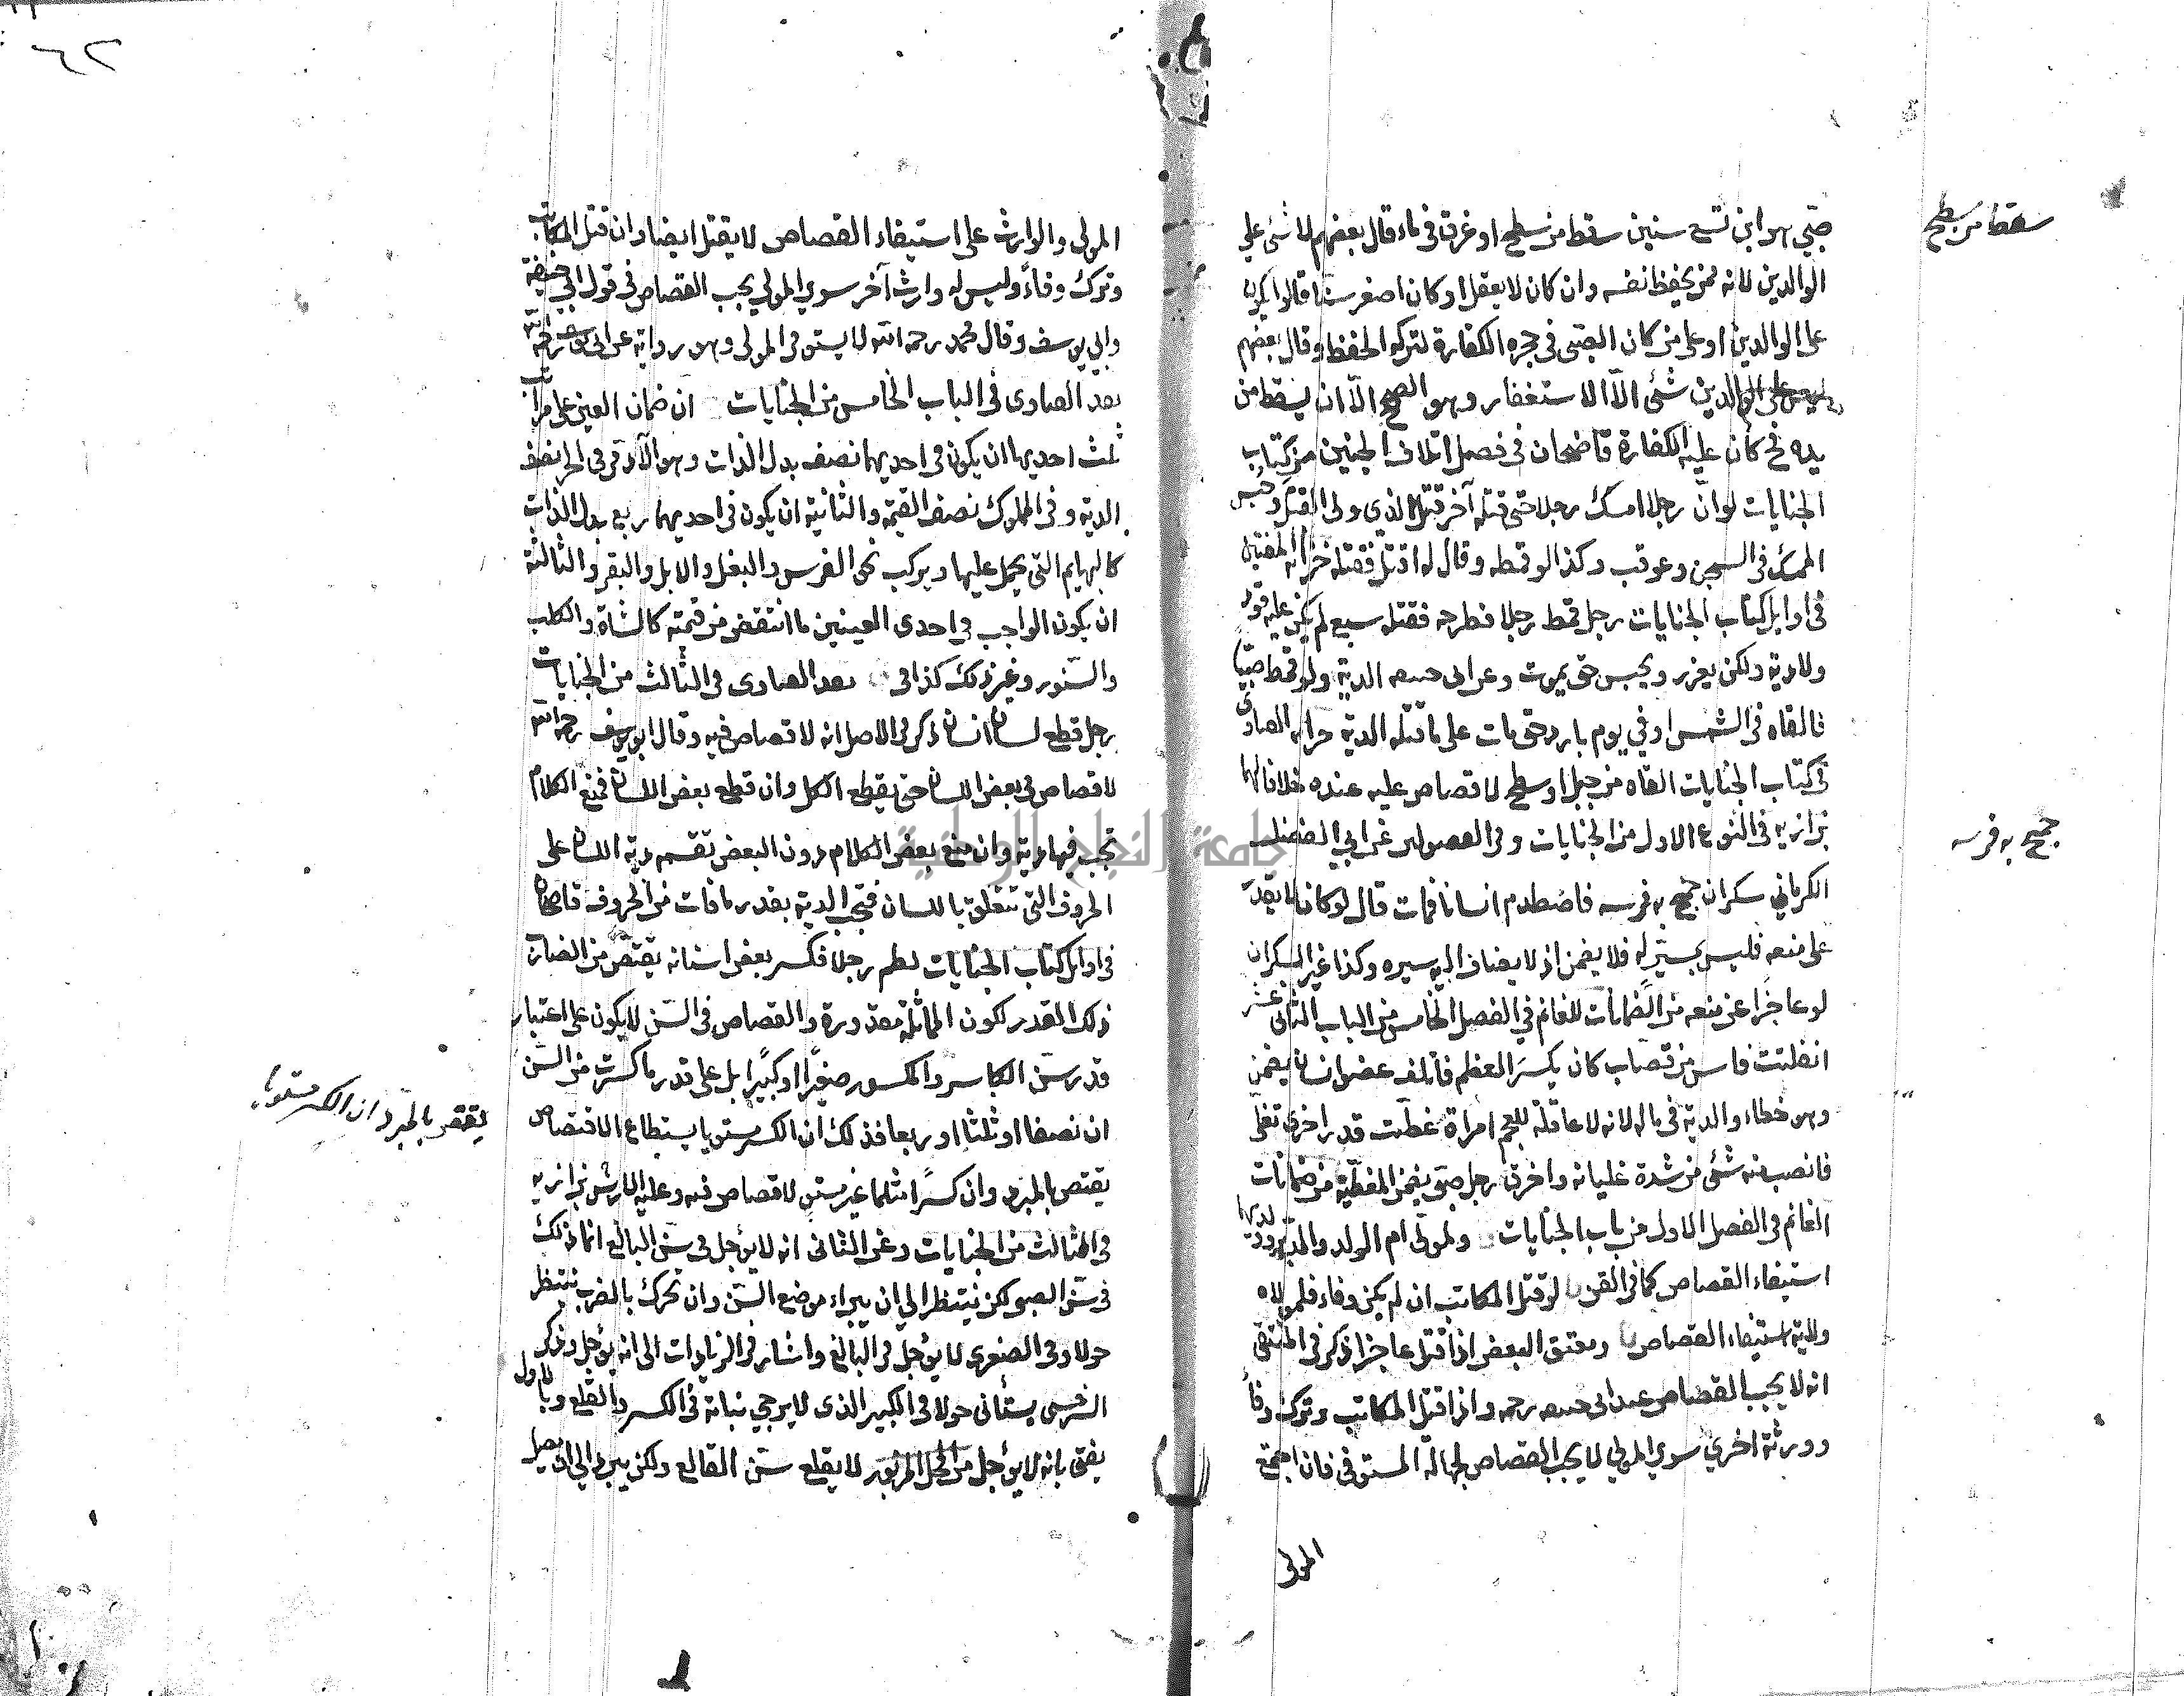 صبي هو ابن تسع سنين سقط من سطح او غرق في ماء قال بعضهم لا شئ علي
الوالدين لانه ممن يحفظ نفسه وان كان لا يعقل او كان اصغر سنا قالوا يكون
على الوالدين او على من كان الصبي في حجره الكفارة لتركه الحفظ وقال بعضهم
ليس على الوالدين شئ الا الاستغفار وهو الصحيح الا ان يسقط من
يده فح كان عليه الكفارة قاضيخان في فصل اتلاف الجنين من كتاب
الجنايات لو ان رجلا امسك رجلا حتى قتله آخر قتل الذي ولى القتل وحبس
الممسك في السجن وعوقب وكذا لو قمطه وقال له اقتل فقتله خزانة المفتين
في اوايل كتاب الجنايات رجل قمط رجلا فطرحه فقتله سبع لم يكن عليه قود
ولا دية ولكن يعزر ويحبس حتى يموت وعن ابى حنيفه الدية ولو قمط صبيا
فالقاه في الشمس او في يوم بارد حتى مات على عاقلته الدية
في كتاب الجنايات القاه من جبل او سطح لا قصاص عليه عنده خلافا لهما
بزازيه في النوع الاول من الجنايات وفي الفصولين عن ابي الفضل
الكرماني سكران جمح به فرسه فاصطدم انسانا فمات قال لو كان لا يقدر
على منعه فليس بمسير له فلا يضمن اذ لا يضاف اليه سيره وكذا غير السكران
لو عاجزا عن منعه من الضمانات للغانم في الفصل الخامس من الباب الثانى عشر
انفلتت فاس من قصاب كان يكسر العظم فاتلف عضو انسان يضمن
وهو خطاء والدية في ماله لانه لا عاقلة للعجم امراة غطت قدر اخرى تغلى
فانصب منه شئ من شدة غليانه واحرق رجل صبي يضمن المغطية من ضمانات
الغانم في الفصل الاول من باب الجنايات ولمولى ام الولد والمدبر وولديهما
استيفاء القصاص كما في القن لو قتل المكاتب ان لم يكن وفاء فلمولاه
ولاية استيفاء القصاص ومعتق البعض اذا قتل عاجزا ذكر في المنتقى
انه لا يجب القصاص عند ابى حنيفه رحمه واذا قتل المكاتب وترك وفا
وورثة اخرى سوى المولى لا يجب القصاص لجهالة المستوفى فان اجتمع
المولى
سقط من سطح
جمح به فرسه
٦٢
المولى والوارث على استيفاء القصاص لا يقتل ايضا وان قتل المكاتب
وترك وفاء وليس له وارث آخر سوى المولى يجب القصاص في قول ابى حنيفة
وابي يوسف وقال محمد رحمه الله لا يستوفى المولى وهو رواية عن ابى يوسف رحمه الله
نقد الفتاوى في الباب الخامس من الجنايات ان ضمان العين على مراتب
ثلث احديها ان يكون في احديهما نصف بدل الذات وهو الآدمى في الحر نصف
الدية وفى المملوك نصف القيمة والثانية ان يكون في احديهما ربع بدل الذات
كالبهايم التى يحمل عليها ويركب نحو الفرس والبغل والابل والبقر والثالثة
ان يكون الواجب في احدى العينين ما انتقض من قيمته كالشاة والكلب
والسنور وغير ذلك كذا في نقد الفتاوى في الثالث من الجنايات
رجل قطع لسان انسان ذكر في الاصل انه لا قصاص فيه وقال ابو يوسف رحمه الله
لا قصاص في بعض اللسان حتى يقطع الكل وان قطع بعض اللسان فمنع الكلام
تجب فيها دية وان منع بعض الكلام دون البعض تقسم دية اللسان على
الحروف التى تتعلق باللسان فتجب الدية بقدر ما فات من الحروف قاضيخان
في اوايل كتاب الجنايات لطم رجلا فكسر بعض اسنانه يقتص من الضارب
ذلك القدر لكون المماثلة مقدورة والقصاص في السن لا يكون على اعتبار
قدر سن الكاسر والمكسور صغيرا او كبيرا بل على قدر ما كسرت من السن
ان نصفا او ثلثا او ربعا فذلك ان الكسر مستويا يستطاع الاقتصاص
يقتص بالمبرد وان كسرا مثلما غير مستو لا قصاص فيه وعليه الارش بزازيه
في الثالث من الجنايات وعن الثانى انه لا يؤجل في سن البالغ انما ذلك
في سن الصبى لكن ينتظر الى ان يبراء موضع السن وان تحرك بالضرب ينتظر
حولا وفى الصغرى لا يؤجل في البالغ واشار في الزيادات الى انه يؤجل وذكر
السرخسى يستأنى حولا في الكبير الذى لا يرجى نباته في الكسر والقلع وبالاول
يفتى بانه لا يؤجل من المحل المزبور لا يقلع سن القالع ولكن يبرد الى ان يصل
يقتص بالمبرد ان الكسر مستويا
جامعة النجاح الوطنية